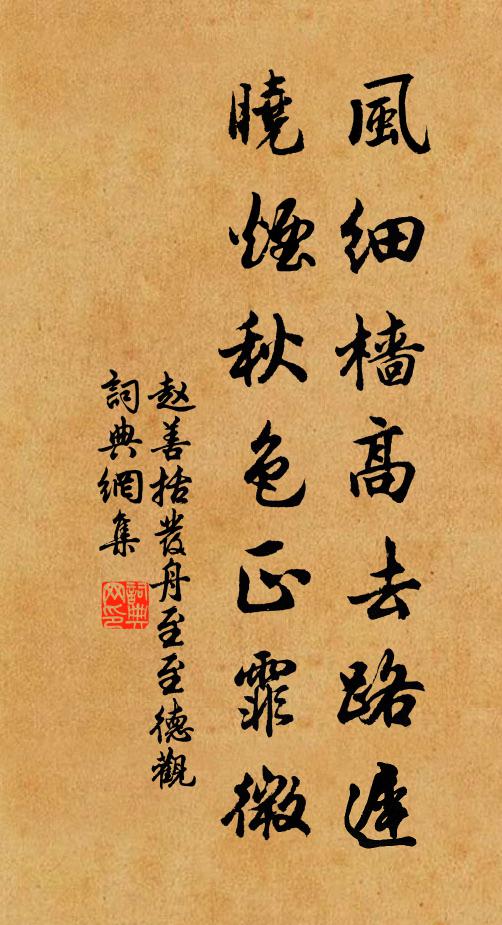 風細檣高去路遲
曉煙秋色正霏微
赵善括發舟至至德觀
詞典網集
詞典網印